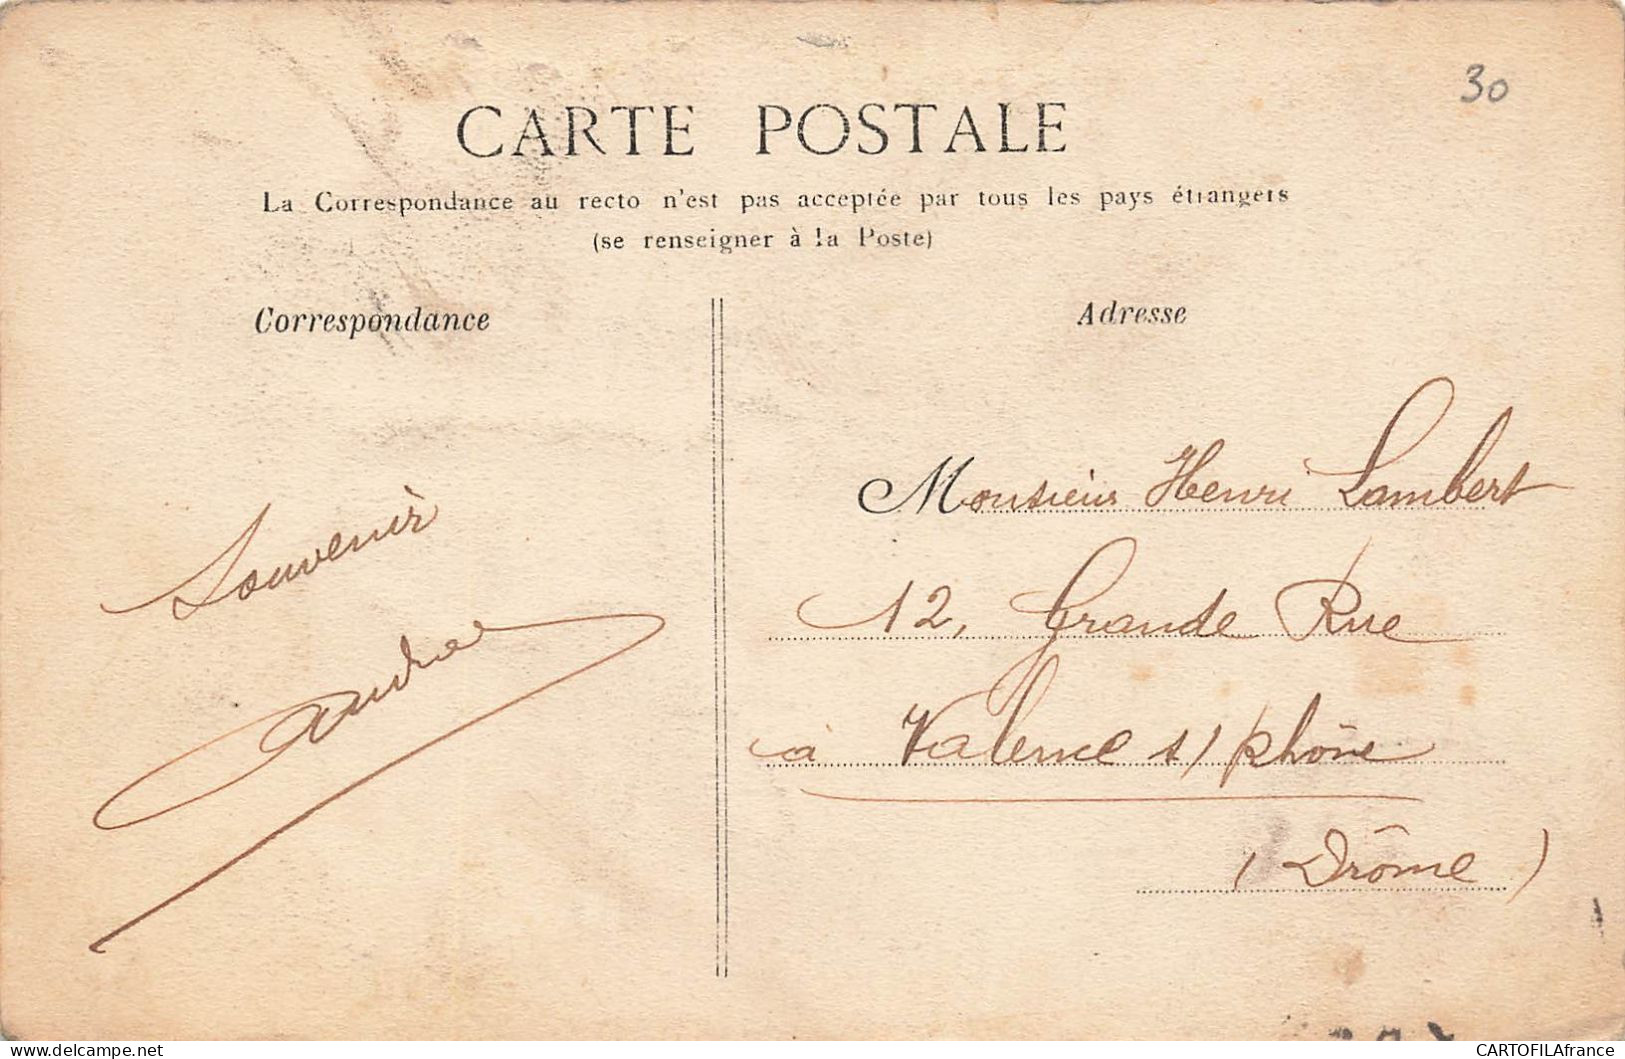 30
CARTE POSTALE
La Correspondance au recto n'est pas acceptée par tous les pays étrangers
(se renseigner à la Poste)
Correspondance
Adresse
Souvenir
Monsieur Henri Lambert
12, Grande Rue
à Valence s/ Rhône
(Drôme)
CARTOFILAfrance